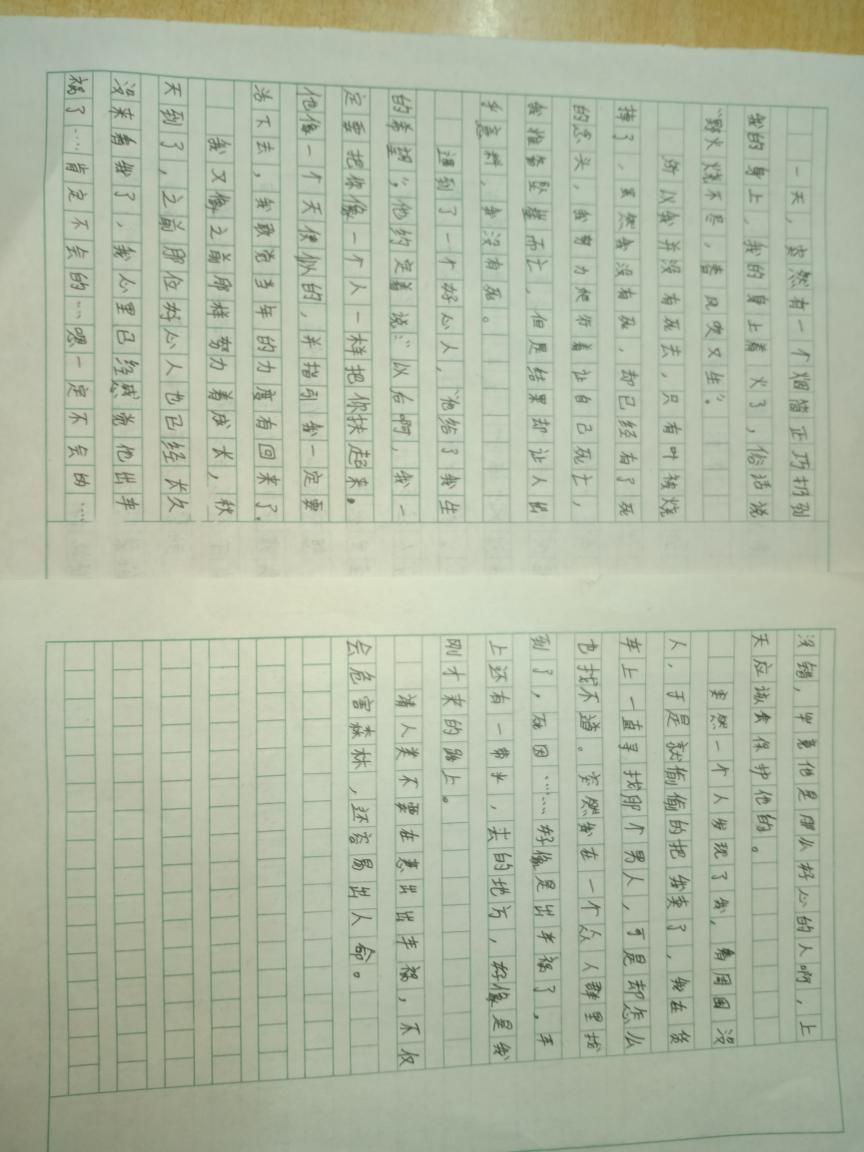 一天，突然有一个烟笛正巧扔到
我的身上，我的身上着火了，俗话说
“野火烧不尽，春风吹又生”。
所以我并没有死去，只有叶被烧
掉了，虽然我没有死，却已经有了死
的念头，我努力爬行着让自己死亡，
我推备坠崖而亡，但是结果却让人出
乎意料，我没有死。
遇到了一个好心人，“他给了我生
的希望”，他约定着说：“以后啊，我一
定要把你像一个人一样把你扶起来。
他像一个天使似的，并指引我一定要
活下去，我敢说当年的力度有回来了.
我又像之前那样努力着成长，秋
天到了，之前那位好心人也已经太久
没来看我了，我心里已经感觉他出车
祸了……肯定不会的……嗯一定不会的……
没错，毕竟他是那么好心的人啊，上
天应该会保护他的。
突然一个人发现了我，看周围没
人，于是就偷偷的把我卖了，我在货
车上一直寻找那个男人，可是却怎么
也找不道。突然我在一个众人群里找
到了，死因……好像是出车祸了，车
上还有一带水，去的地方，好像是我
刚才来的路上。
请人类不要在意出出车祸，不仅
会危害森林，还容易出人命。